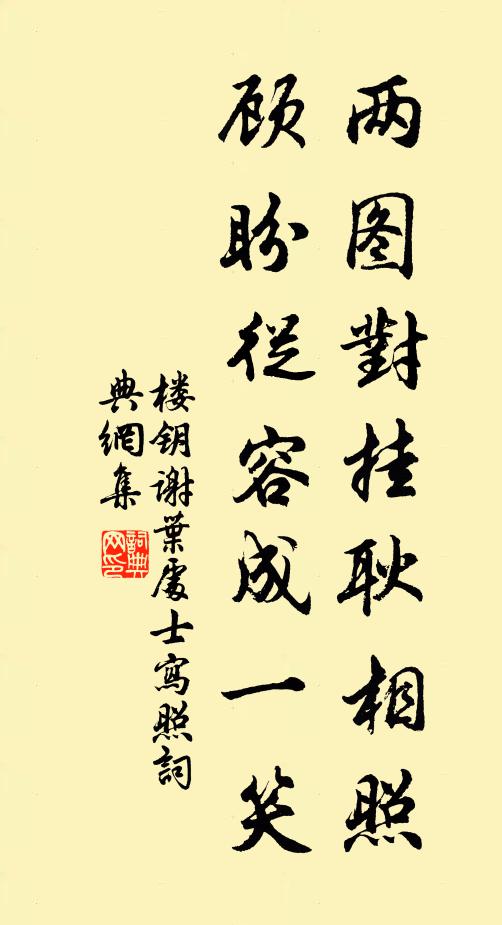 两图對挂耿相照
顾盼從容成一笑
楼钥谢葉處士寫照詞
典網集
詞典
网印